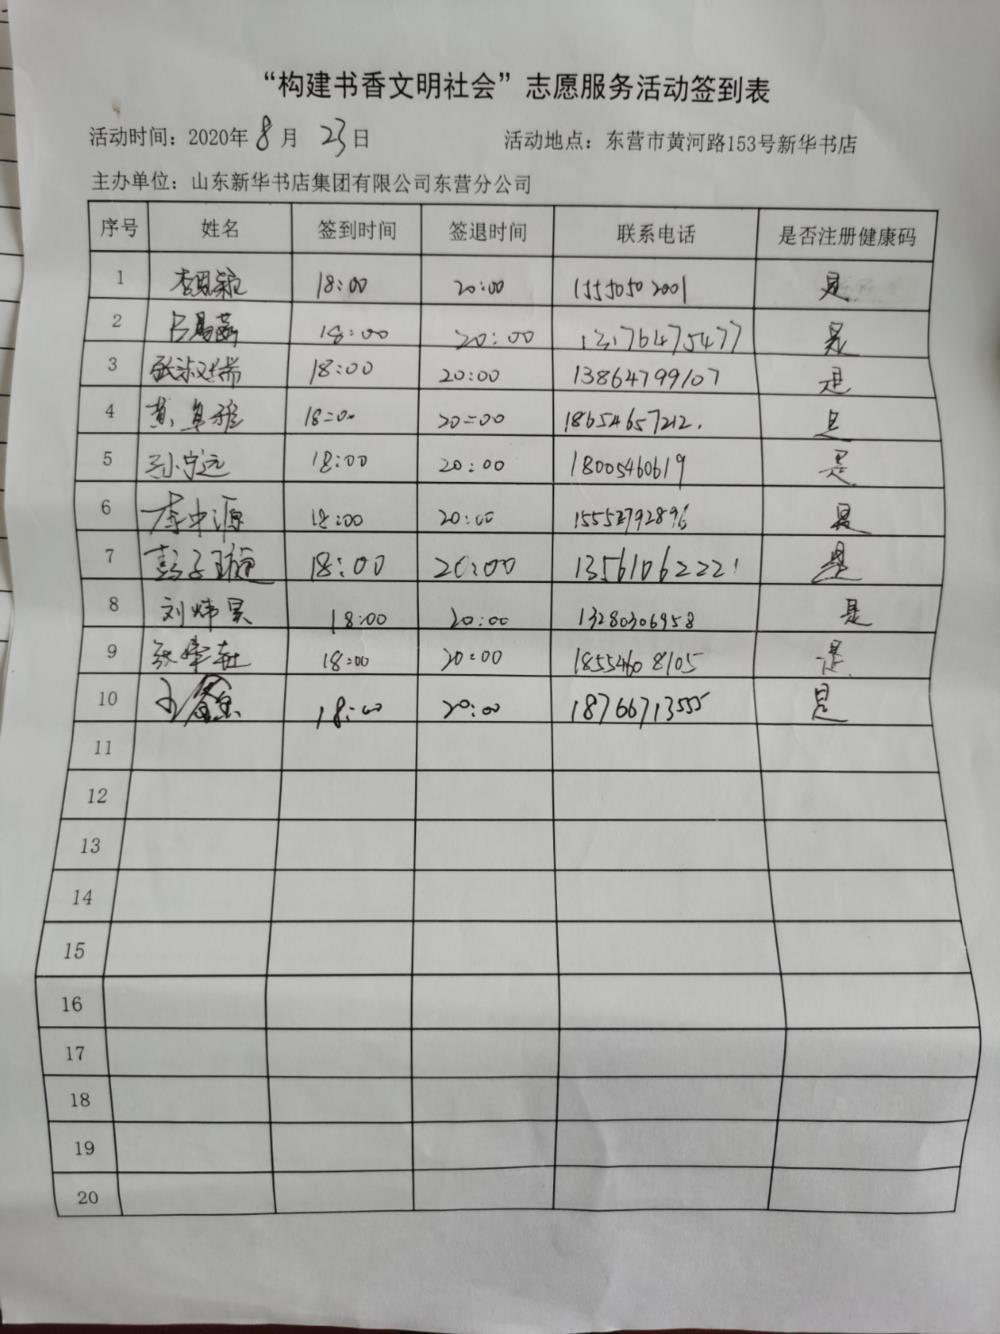 “构建书香文明社会”志愿服务活动签到表
活动时间：2020年8月23日 活动地点：东营市黄河路153号新华书店
主办单位：山东新华书店集团有限公司东营分公司
序号 姓名 签到时间 签退时间 联系电话 是否注册健康码
1 18:00 20:00 15550502001 是
2 18:00 20:00 13176475477 是
3 张淑瑞 18:00 20:00 13864799107 是
4 黄 18:00 20:00 18654657212. 是
5 孙宁远 18:00 20:00 18005460619 是
6 李中源 18:00 20:00 15552792896 是
7 彭子璇 18:00 20:00 13561062221 是
8 刘炜昊 18:00 20:00 13280306958 是
9 张 18:00 20:00 18554608105 是
10 王 18:00 20:00 18766713555 是
11
12
13
14
15
16
17
18
19
20